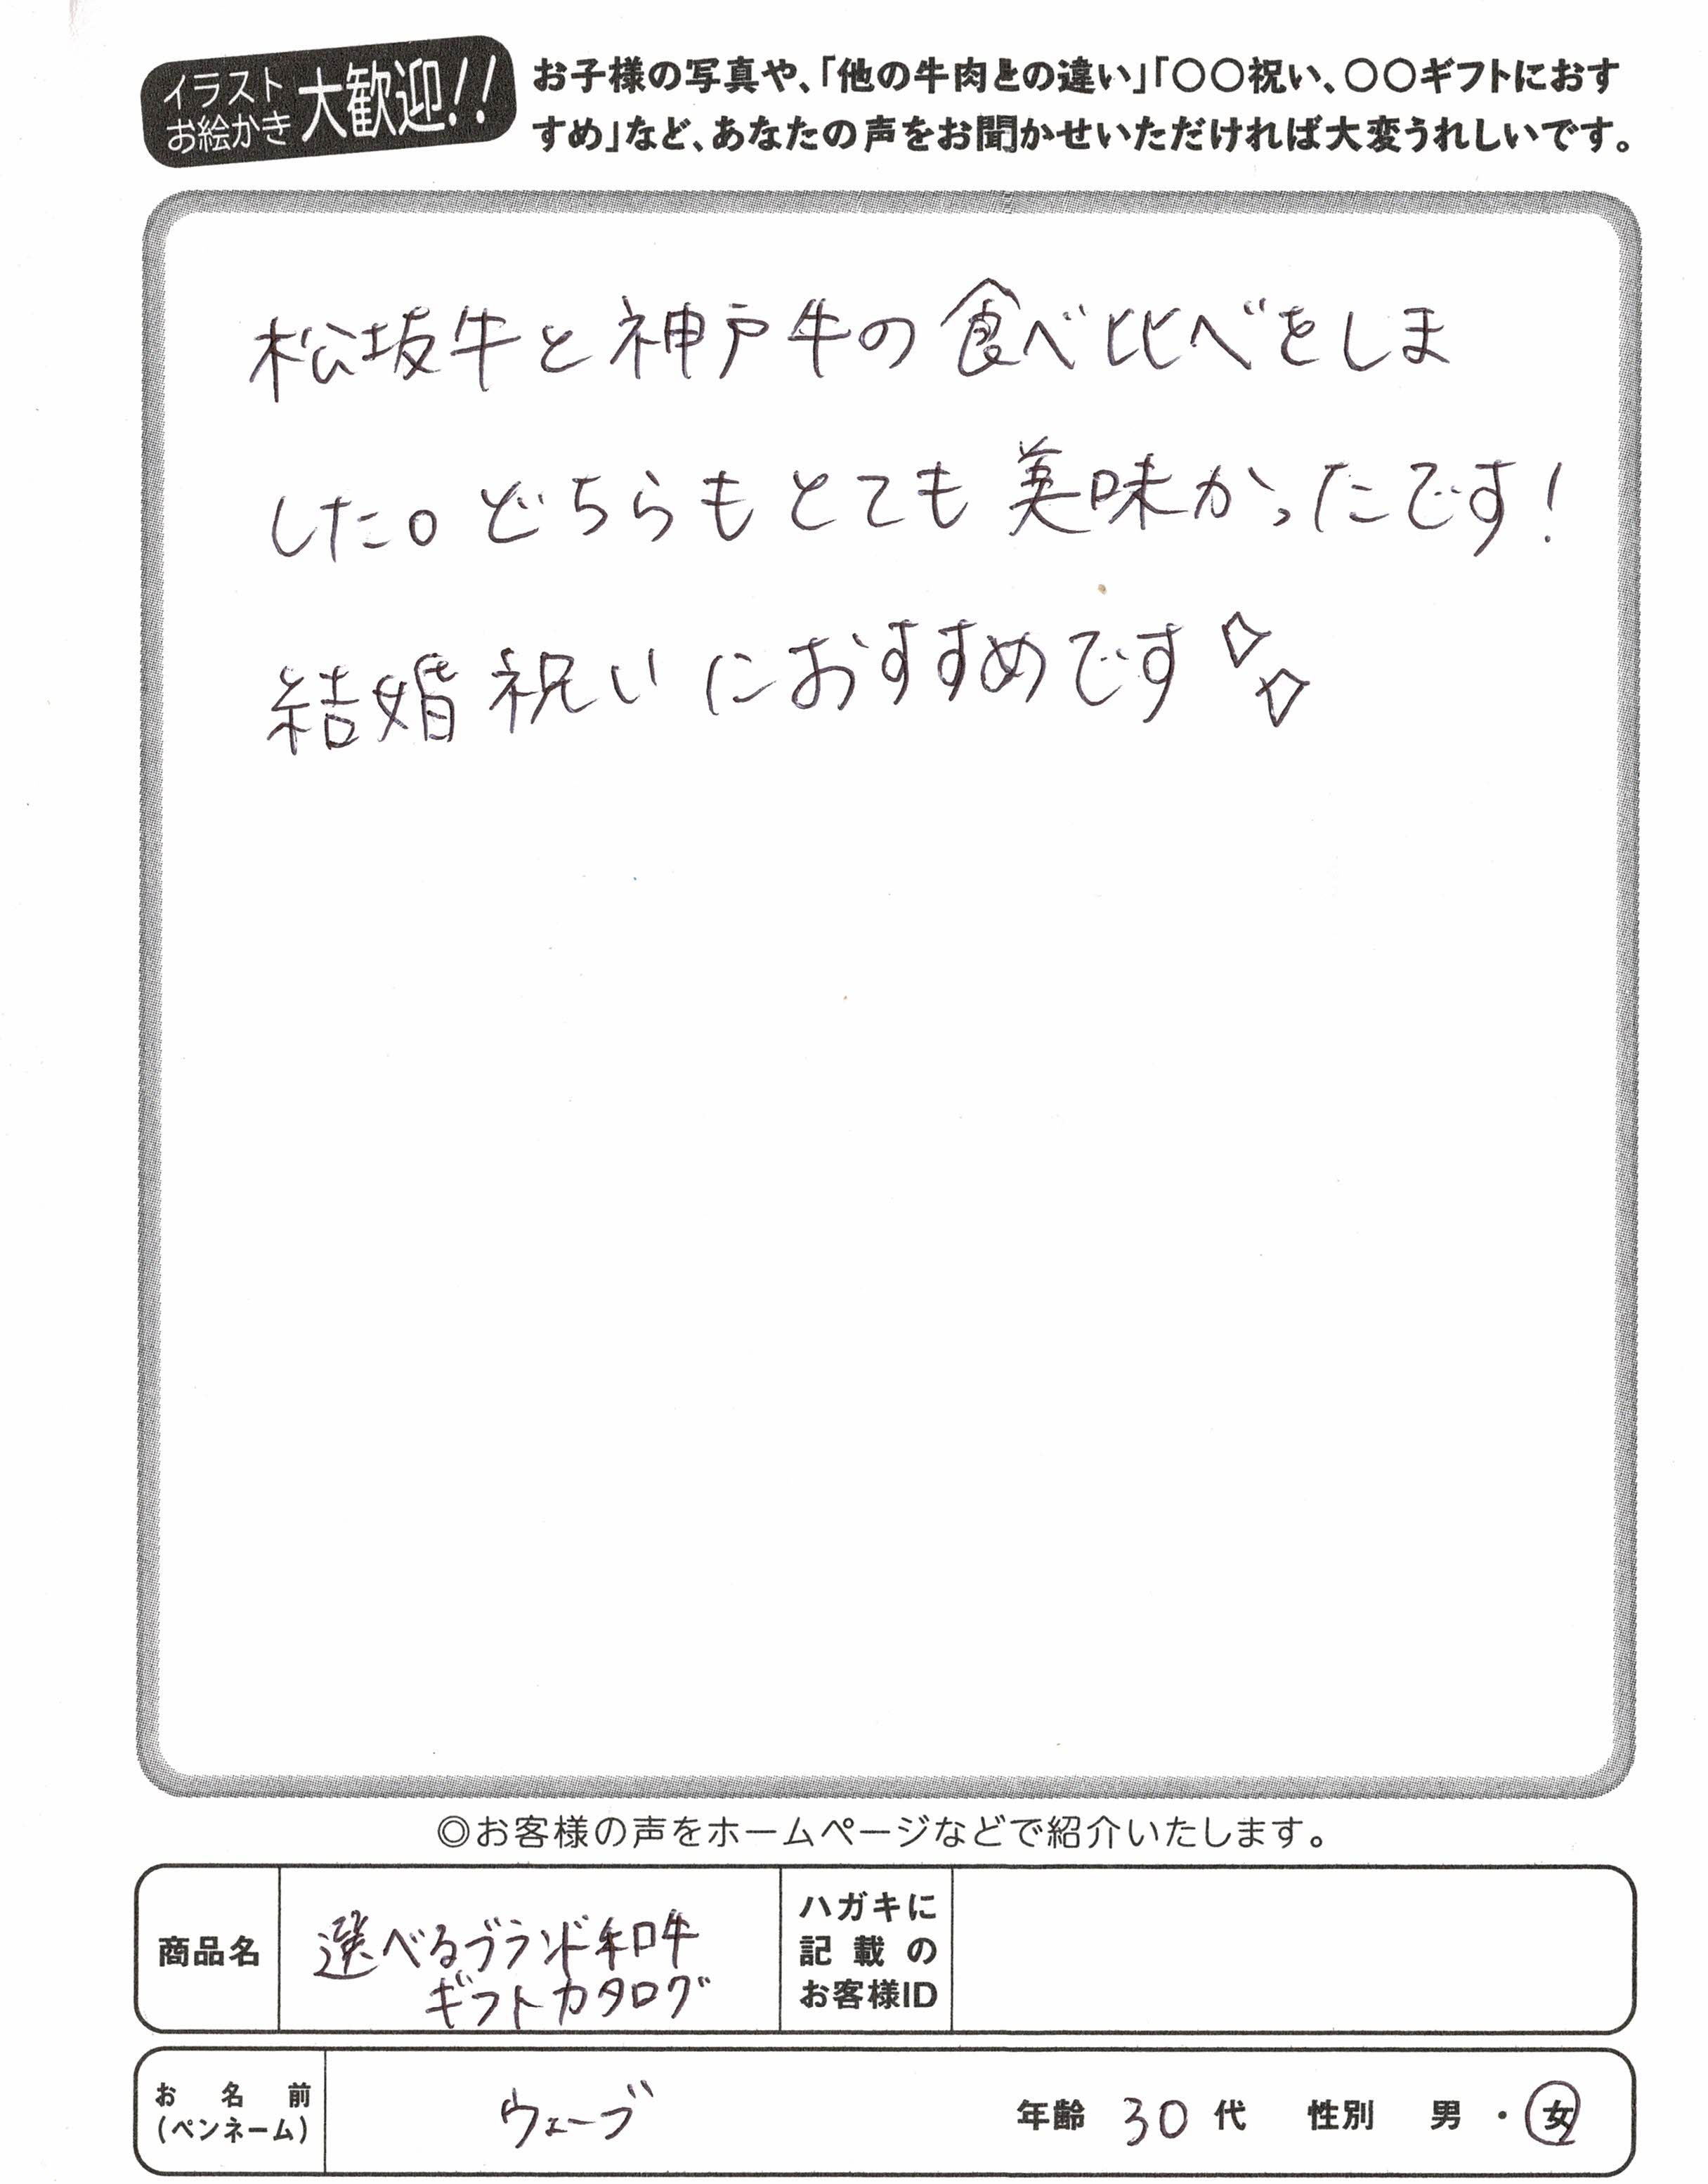 イラスト
お絵かき
大歓迎!!
お子様の写真や、「他の牛肉との違い」「〇〇祝い、〇〇ギフトにおす
すめ」など、あなたの声をお聞かせいただければ大変うれしいです。
松坂牛と神戸牛の食べ比べをしま
した。どちらもとても美味かったです!
結婚祝いにおすすめです
◎お客様の声をホームページなどで紹介いたします。
商品名
選べるブランド和牛
ギフトカタログ
ハガキに
記載の
お客様ID
お名前
(ペンネーム)
ウェーブ
年齢 30 代 性別 男・女